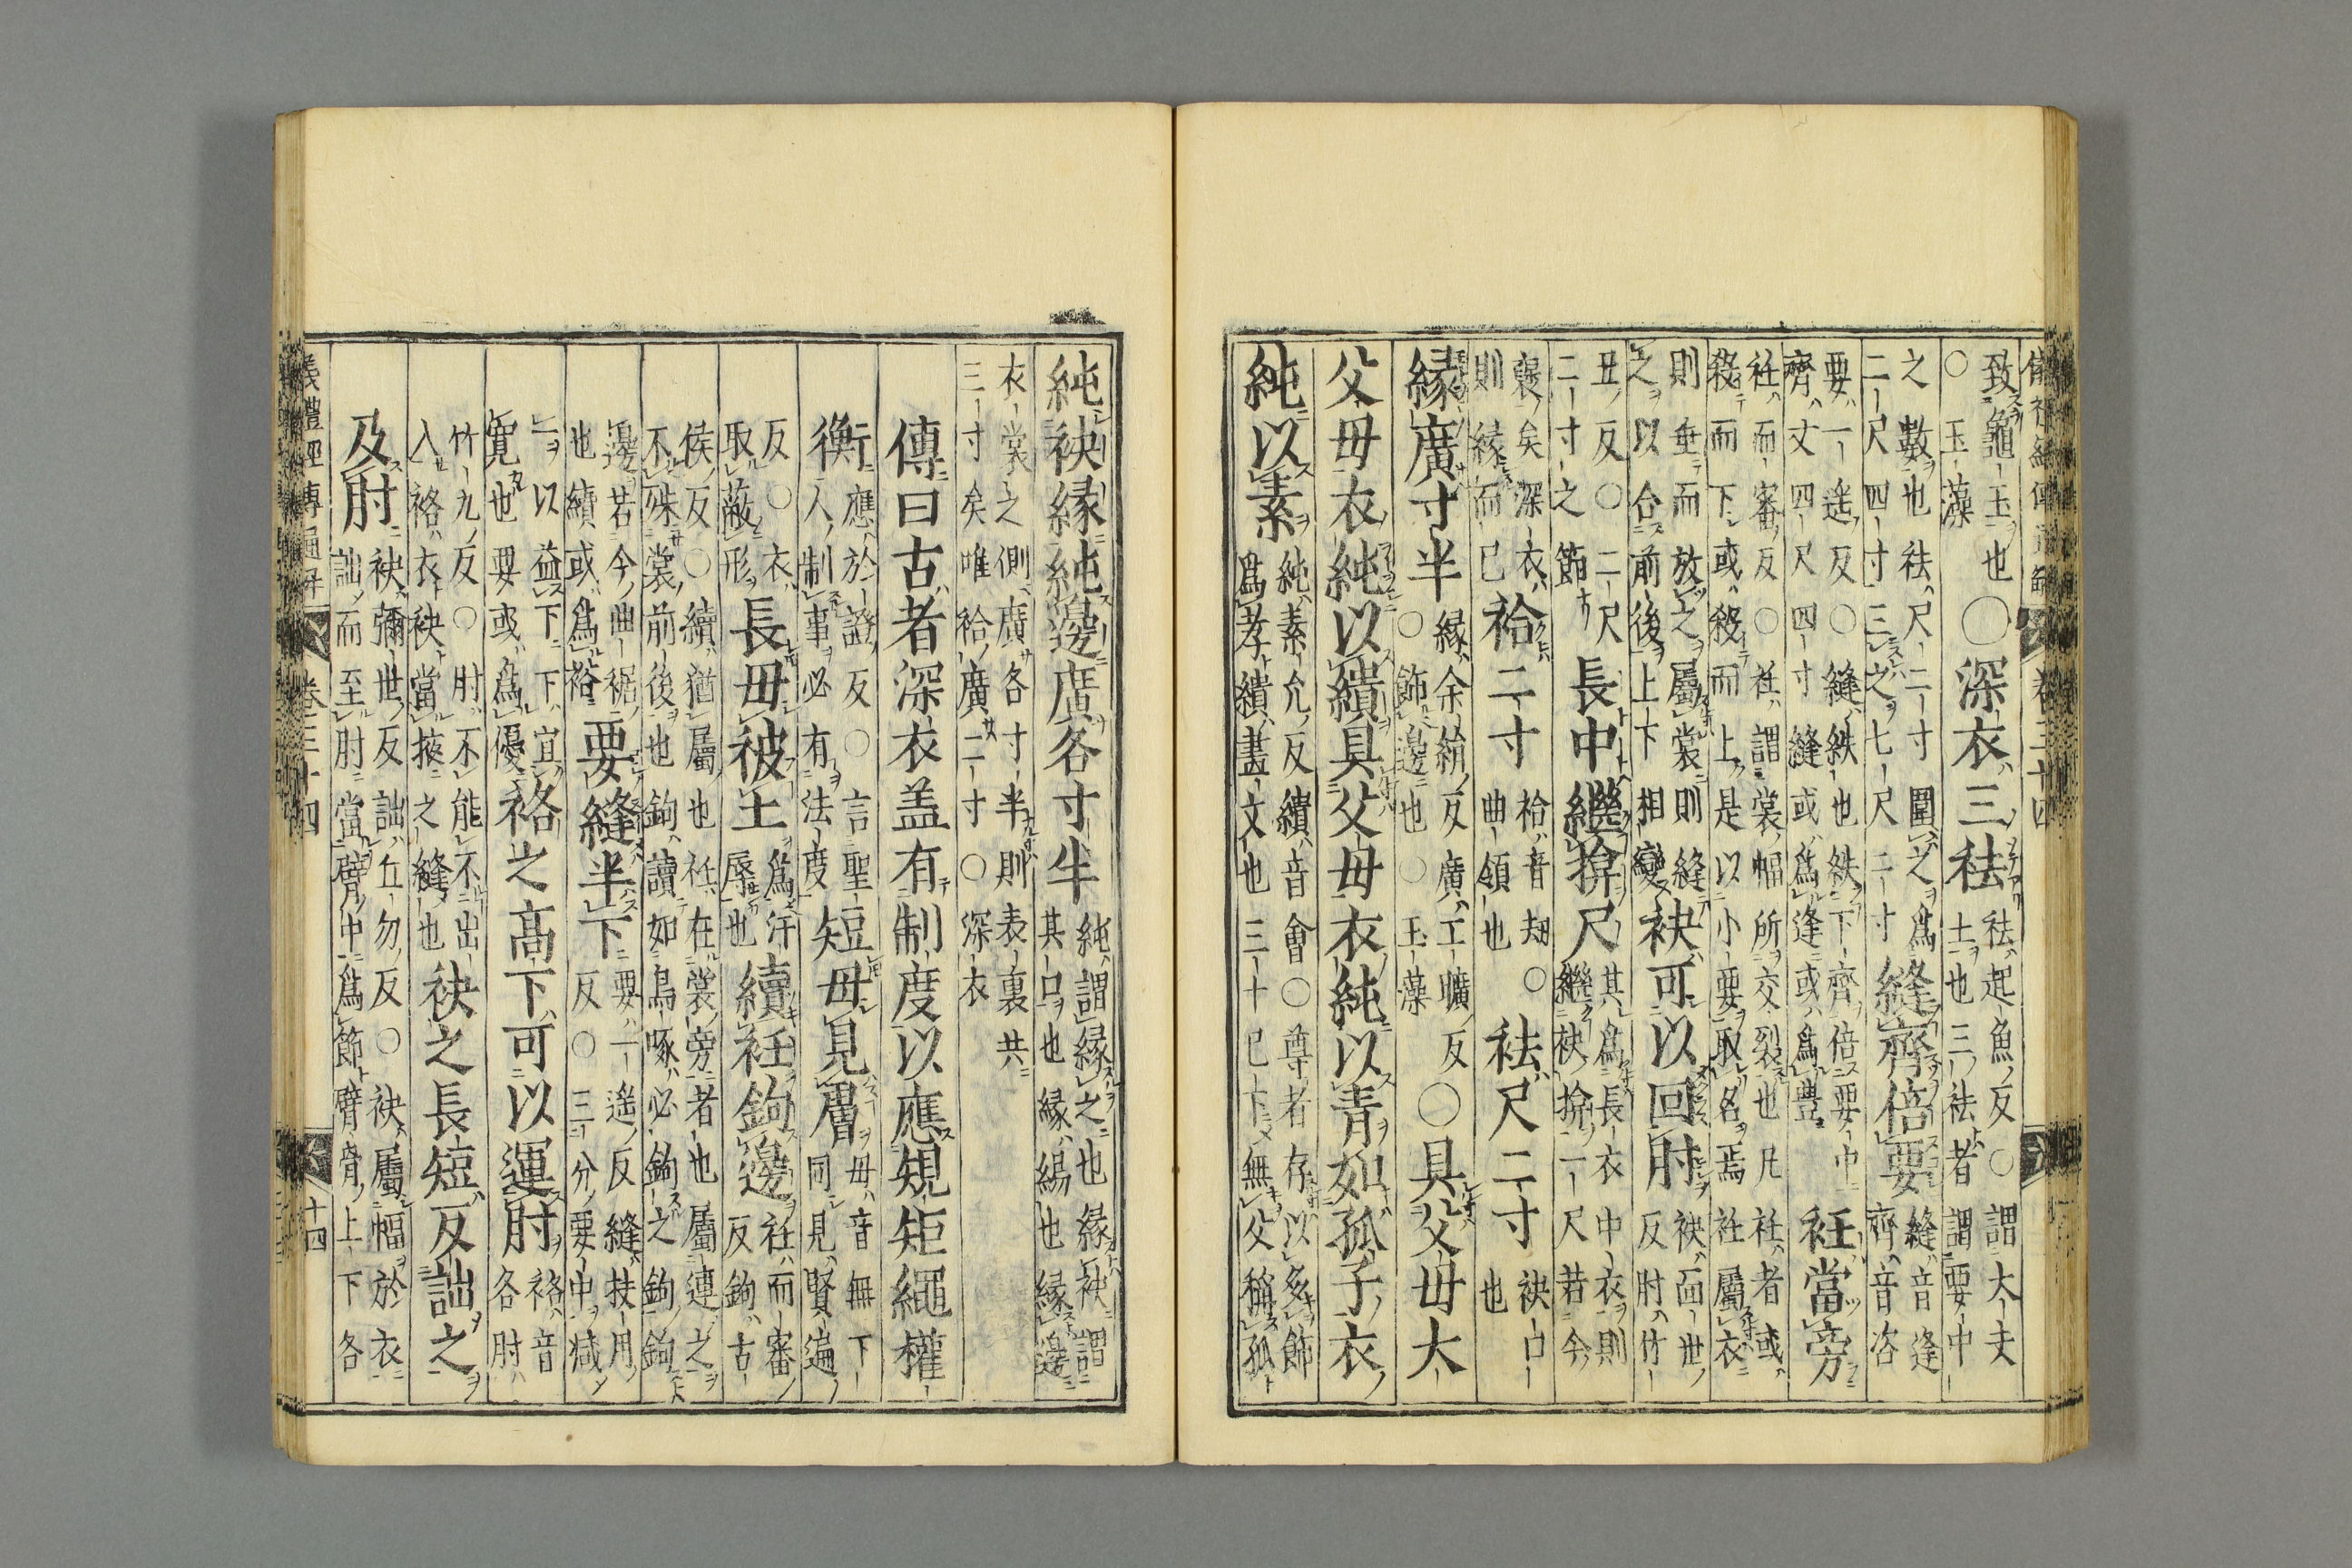 儀禮經傳通解　卷三十四
致龜玉也○玉藻○深衣三袪袪起魚反○謂大夫士也三袪者謂要中
之數也袪尺二寸圍之爲二尺四寸三之七尺二寸縫齊倍要縫音逢齊音咨
要一遙反○縫紩也紩下齊倍要中齊丈四尺四寸縫或爲逢或爲豐衽當旁
衽而審反○衽謂裳幅所交裂也凡衽者或殺而下或殺而上是以小要取名焉衽屬衣
則垂而放之屬裳則縫之以合前後上下相變袂可以回肘袂面世反肘竹
丑反○二尺二寸之節長中繼揜尺其爲長衣中衣則繼袂揜一尺若今
褎矣深衣則緣而已袷二寸袷音刧○曲領也袪尺二寸袂口也
緣廣寸半緣余絹反廣工曠反○飾邊也○玉藻○具父母大
父母衣純以繢具父母衣純以青如孤子衣
純以素純素允反繢音會○尊者存以多飾爲孝繢畫文也三十已下無父稱孤
純袂緣純邊廣各寸半純謂緣之也緣袂謂其口也緣緆也緣邊
衣裳之側廣各寸半則表裏共三寸矣唯袷廣二寸○深衣
傳曰古者深衣盖有制度以應規矩繩權
衡應於證反○言聖人制事必有法度短毋見膚毋音無下同見賢遍
反○衣取蔽形長毋被土爲汙辱也續衽鉤邊衽而審反鉤古
侯反○續猶屬也衽在裳旁者也屬連之不殊裳前後也鉤讀如鳥啄必鉤之鉤鉤
邊若今曲裾也續或爲裕要縫半下要一遙反○三分要中減縫扶用
一以益下下宜寬也要或爲優袼之高下可以運肘袼音各肘
竹九反○肘不能不出入袼衣袂當掖之縫也袂之長短反詘之
及肘袂彌世反詘丘勿反○袂屬幅於衣詘而至肘當臂中爲節臂骨上下各
儀禮經傳通解　卷三十四　十四